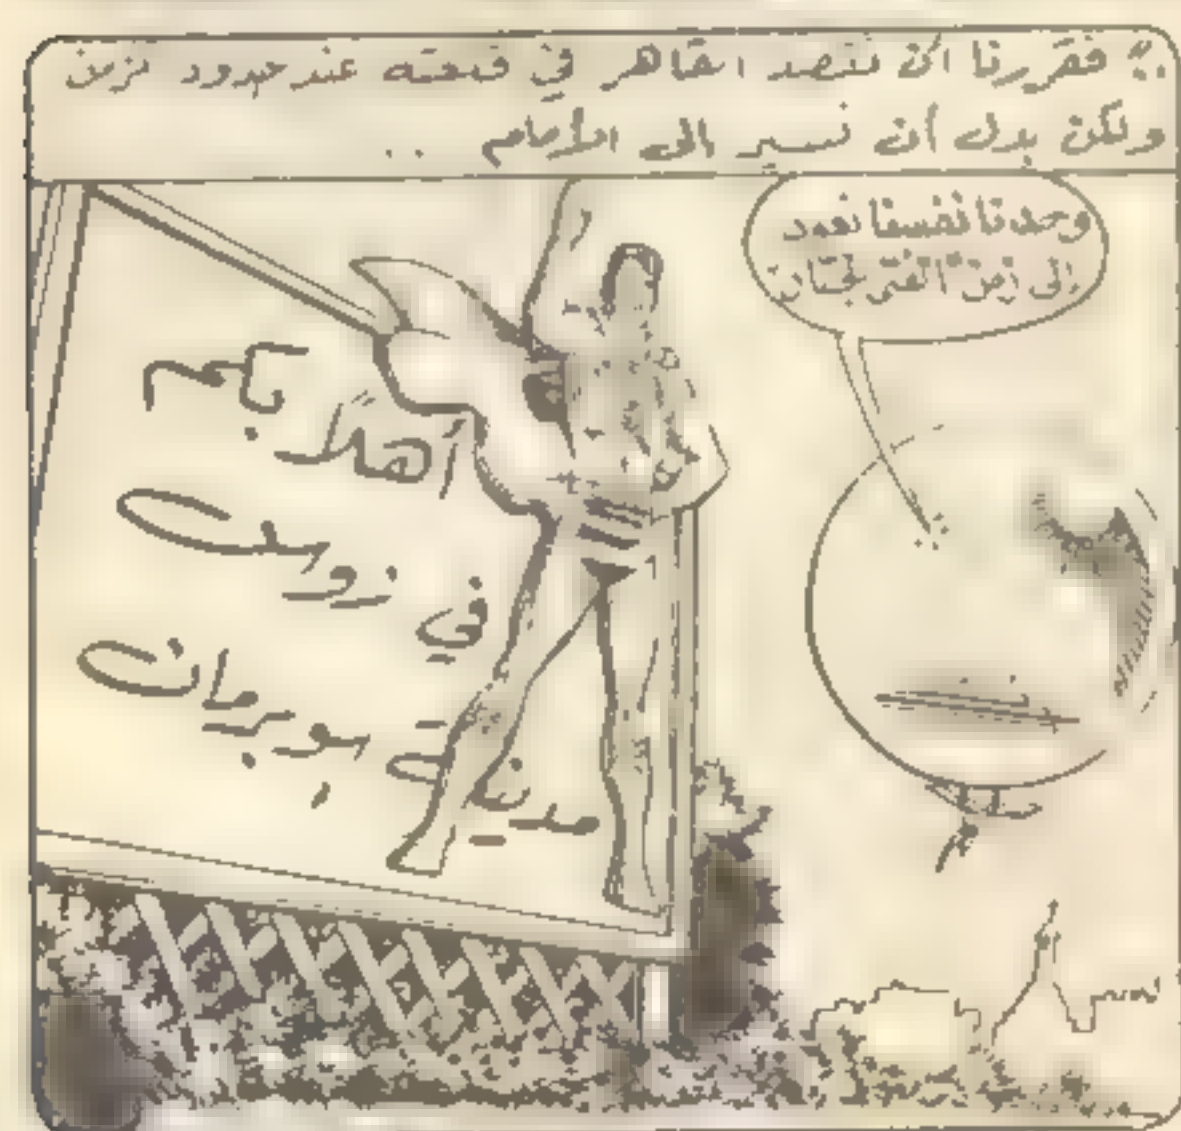 .. فقررنا أن نقصد القاهر في قلعته عند حدود الزمن
ولكن بدل أن نسير الى الأمام ..
وجدنا نفسنا نعود
إلى زمن الفتى الجبّار
أهلاً بكم
في زوسك
مدينة سوبرمان